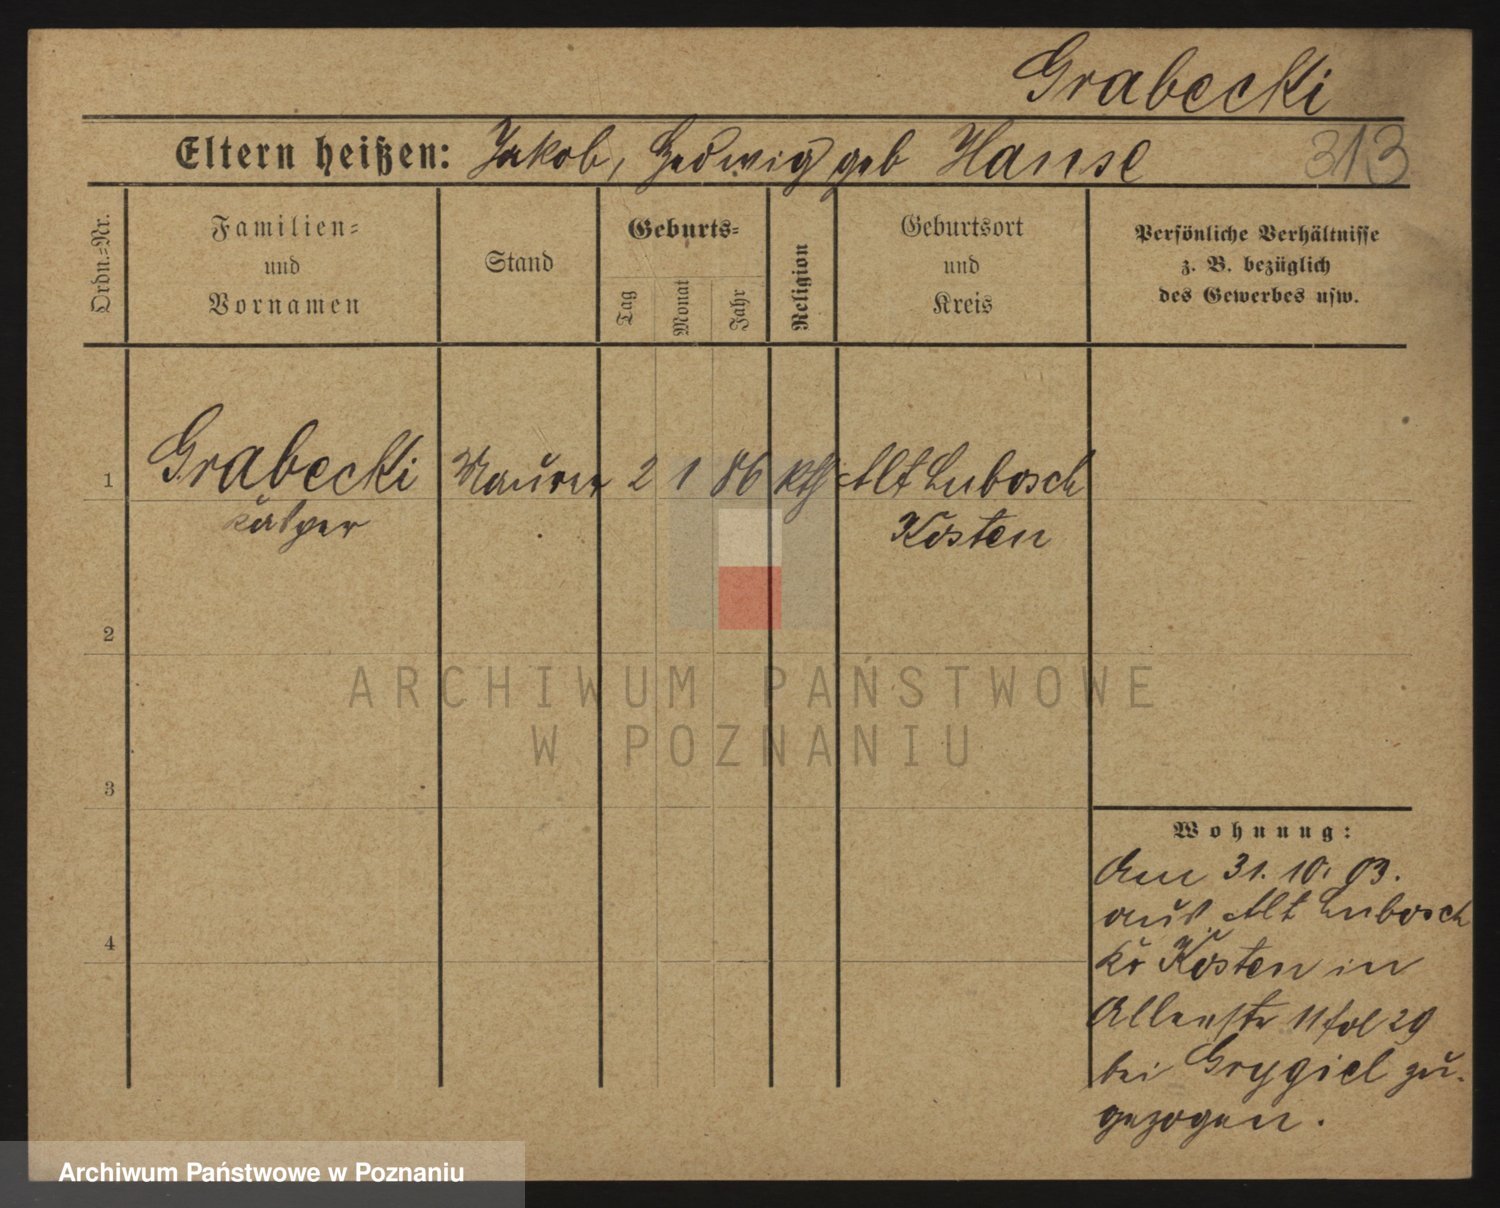 Grabecki
Eltern heißen: Jakob, Hedwig geb Hanse
313
Ordn.=Nr.
Familien=
und
Vornamen
Stand
Geburts=
Tag
Monat
Jahr
Religion
Geburtsort
und
Kreis
Persönliche Verhältnisse
z. B. bezüglich
des Gewerbes usw.
1 Grabecki Maurer 2 1 86 kth Alt Lubosch
Kasper Kosten
2
3
4
Wohnung:
Am 31. 10. 03.
aus Alt Lubosch
Kr Kosten in
Allerstr 11 fol 29
bei Grygiel zu-
gezogen.
ARCHIWUM PAŃSTWOWE
W POZNANIU
Archiwum Państwowe w Poznaniu